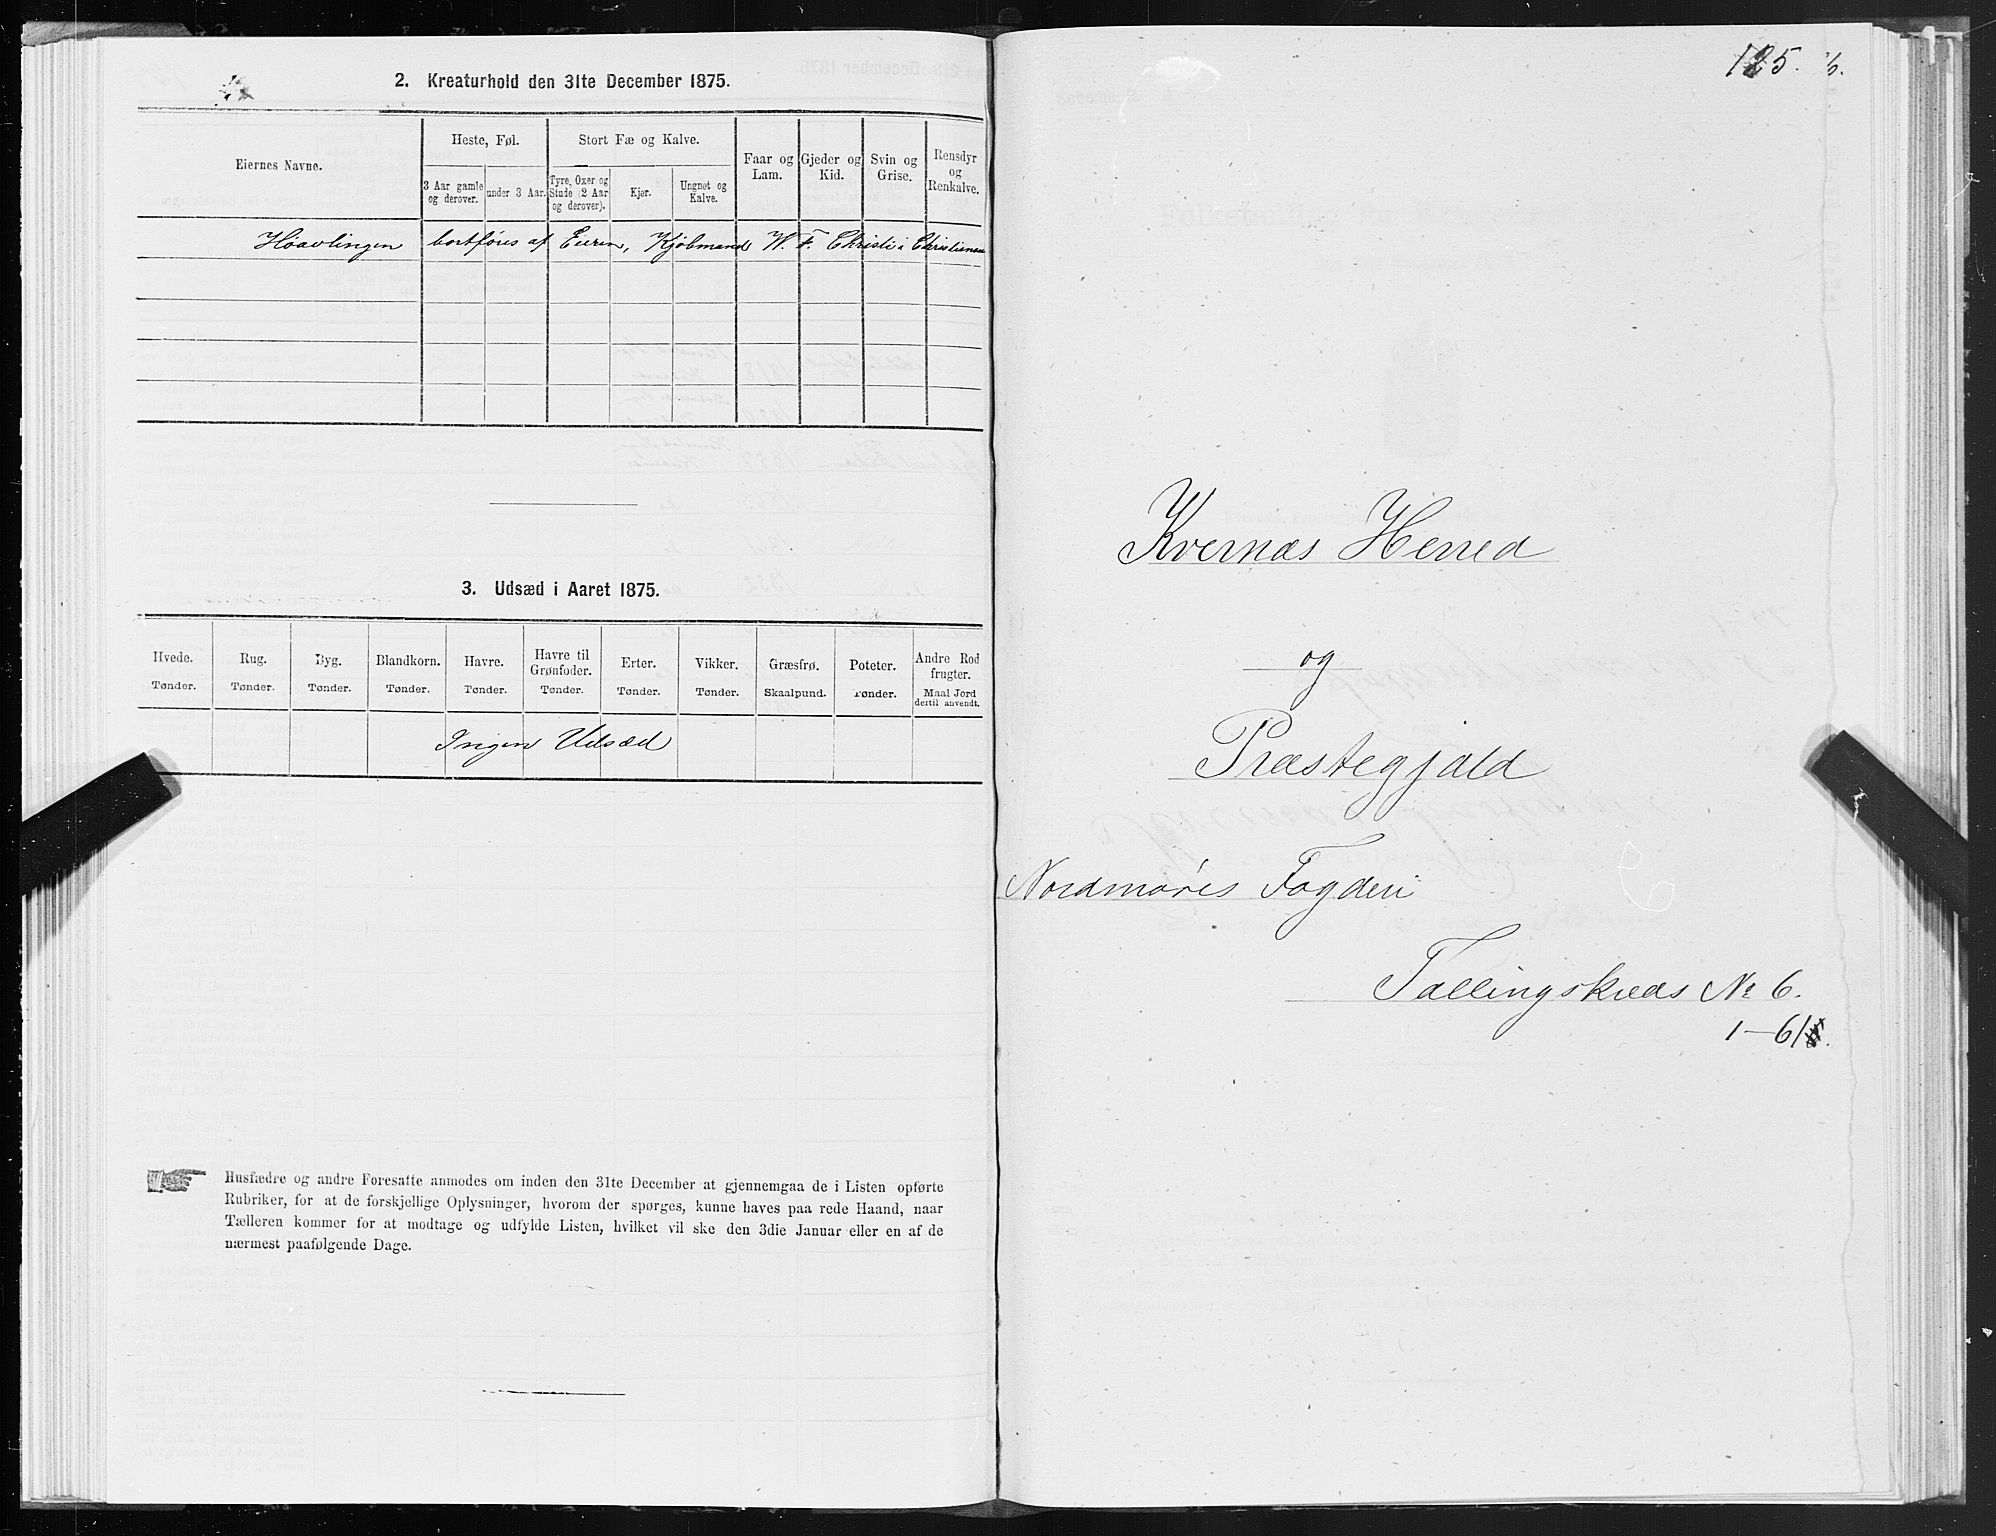 2. Kreaturhold den 31te December 1875.
Eiernes Navne.
Heste, Føl.
3 Aar gamle og derover.
under 3 Aar.
Stort Fæ og Kalve.
Tyre, Oxer og Stude (2 Aar og derover).
Kjør.
Ungnøt og Kalve.
Faar og Lam.
Gjeder og Kid.
Svin og Grise.
Rensdyr og Renkalve.
Høavlingen bortføres af Eieren, Kjøbmand W. F. Christi i Christiansu
3. Udsæd i Aaret 1875.
Hvede. Tønder.
Rug. Tønder.
Byg. Tønder.
Blandkorn. Tønder.
Havre. Tønder.
Havre til Grønfoder. Tønder.
Erter. Tønder.
Vikker. Tønder.
Græsfrø. Skaalpund.
Poteter. Tønder.
Andre Rodfrugter. Maal Jord dertil anvendt.
Ingen Udsæd
Husfædre og andre Foresatte anmodes om inden den 31te December at gjennemgaa de i Listen opførte
Rubriker, for at de forskjellige Oplysninger, hvorom der spørges, kunne haves paa rede Haand, naar
Tælleren kommer for at modtage og udfylde Listen, hvilket vil ske den 3die Januar eller en af de
nærmest paafølgende Dage.
125. 6.
Kvernæs Herred
og
Præstegjæld
Nordmøres Fogderi
Tællingskreds No 6.
1-61